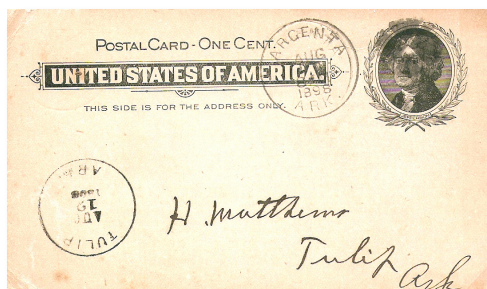 POSTAL CARD - ONE CENT.
UNITED STATES OF AMERICA.
THIS SIDE IS FOR THE ADDRESS ONLY.
ARGENTA
AUG
1896
ARK.
TULIP
AUG
12
ARK.
H. Matthews
Tulip
Ark